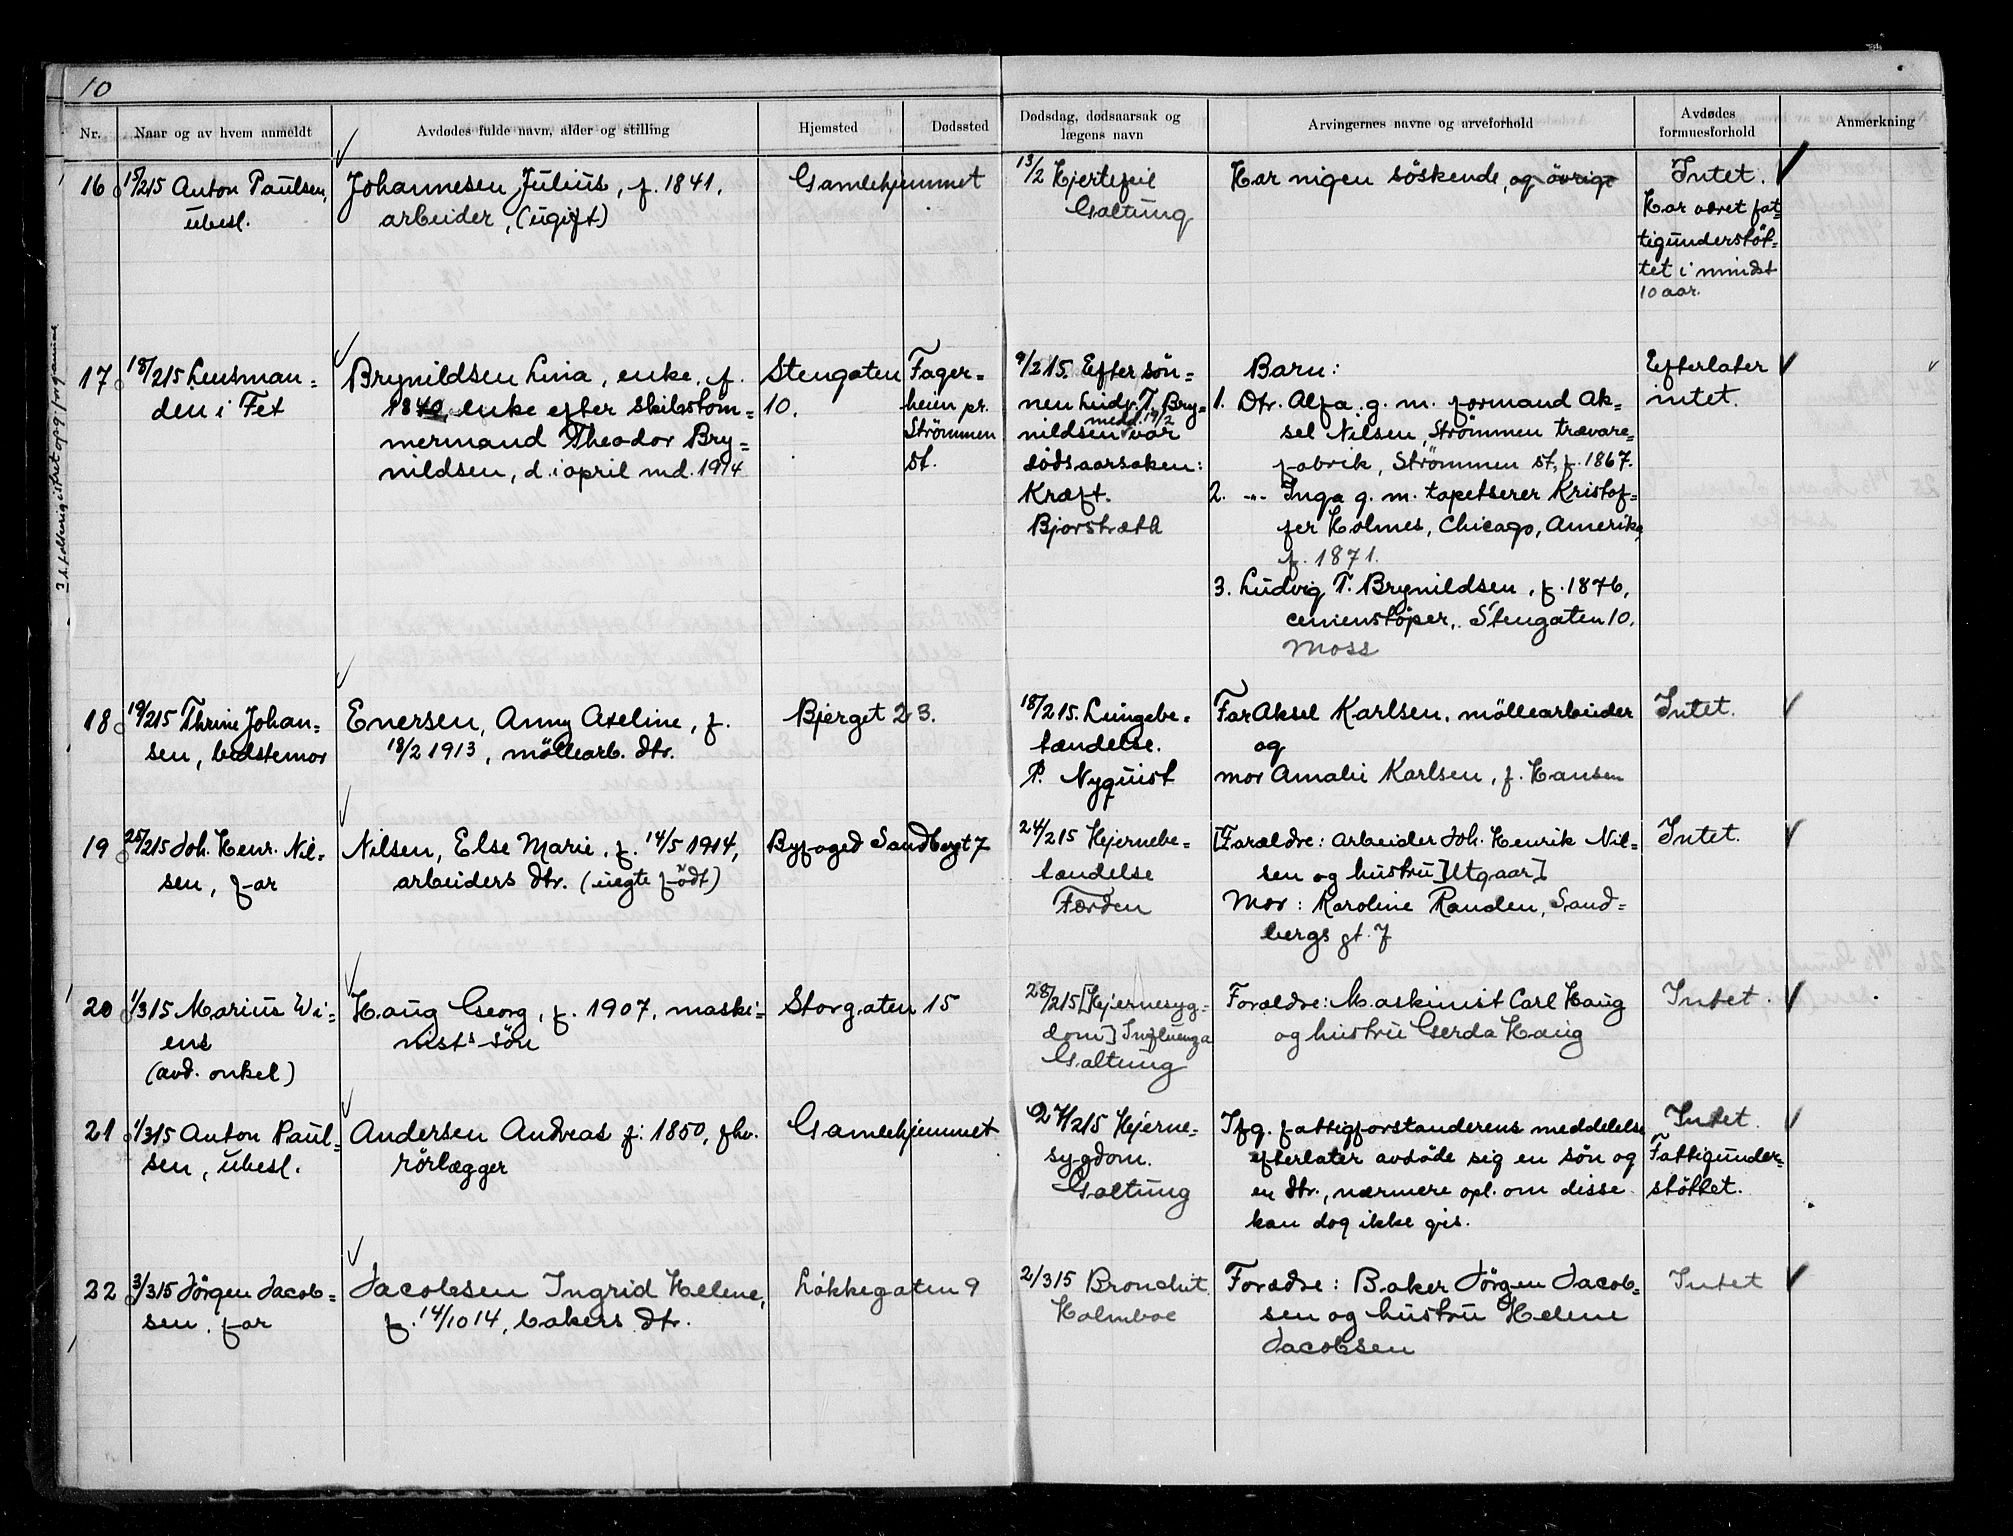 10
Nr.
Naar og av hvem anmeldt
Avdødes fulde navn, alder og stilling
Hjemsted
Dødssted
Dødsdag, dødsaarsak og
lægens navn
Arvingernes navne og arveforhold
Avdødes
formuesforhold
Anmerkning
16
15/215 Anton Paulsen,
ubesl.
Johannesen Julius, f. 1841,
arbeider, (ugift)
Gamlehjemmet
13/2 Hjertefeil
Galtung
Har nigen söskende, og övrige
Intet.
Har været fat=
tigunderstöt=
tet i mindst
10 aar.
17
18/215 Lensman=
den i Fet
Brynildsen Lina, enke, f.
1840 enke efter skibstöm=
mermand Theodor Bry=
nildsen, d. i april md. 1914
Stengaten
10.
Fager=
heim pr.
Strömmen
St.
9/215. Efter sön=
nen Ludv. T. Bry=
medd. 19/2
nildsen var
dödsaarsaken:
Kræft.
Bjorstræth
Barn:
1. Dtr. Alfa g. m. formand Ak=
sel Nilsen, Strömmen trævare=
fabrik, Strömmen St, f. 1867.
2. -"- Inga g. m. tapetserer Kristof=
fer Holmes, Chicago, Amerika,
f. 1871.
3. Ludvig T. Brynildsen, f. 1876,
cementstöper, Stengaten 10.
Moss
Efterlater
intet.
18
19/215 Thrine Johan=
sen, bedstemor
Enersen, Anny Axeline, f.
18/2 1913, möllearb. dtr.
Bjerget 23.
18/215. Lungebe=
tændelse.
P. Nyquist
Far Aksel Karlsen, möllearbeider
og
mor Amalie Karlsen, f. Hansen
Intet.
19
25/215 Joh. Henr. Nil=
sen, far
Nilsen, Else Marie, f. 14/5 1914,
arbeiders dtr. (uegte födt)
Byfoged Sandbergt 7
24/215 Hjernebe=
tændelse
Færden
[Forældre: Arbeider Joh. Henrik Nil=
sen og hustru] Utgaar].
Mor: Karoline Randen, Sand=
bergs gt. 7
Intet.
20
1/315 Marius Wi=
ene
(avd. onkel)
Haug Georg, f. 1907, maski=
nists sön
Storgaten 15
28/215 [Hjernesyg=
dom] Influenza
Galtung
Forældre: Maskinist Carl Haug
og hustru Gerda Haug
Intet.
21
1/315 Anton Paul=
sen, ubesl.
Andersen Andreas f. 1850, fhv.
rörlægger
Gamlehjemmet
27/215 Hjerne=
sygdom.
Galtung
Ifg. fattigforstanderens meddelelse
efterlater avdöde sig en sön og
en dtr., nærmere opl. om disse
kan dog ikke gis.
Intet.
Fattigunder=
stöttet.
22
3/315 Jörgen Jacob=
sen. far
Jacobsen Ingrid Helene,
f. 14/10 14, bakers dtr.
Løkkegaten 9
2/315 Bronchit
Holmboe
Forældre: Baker Jörgen Jacob=
sen og hustru Helene
Jacobsen
Intet